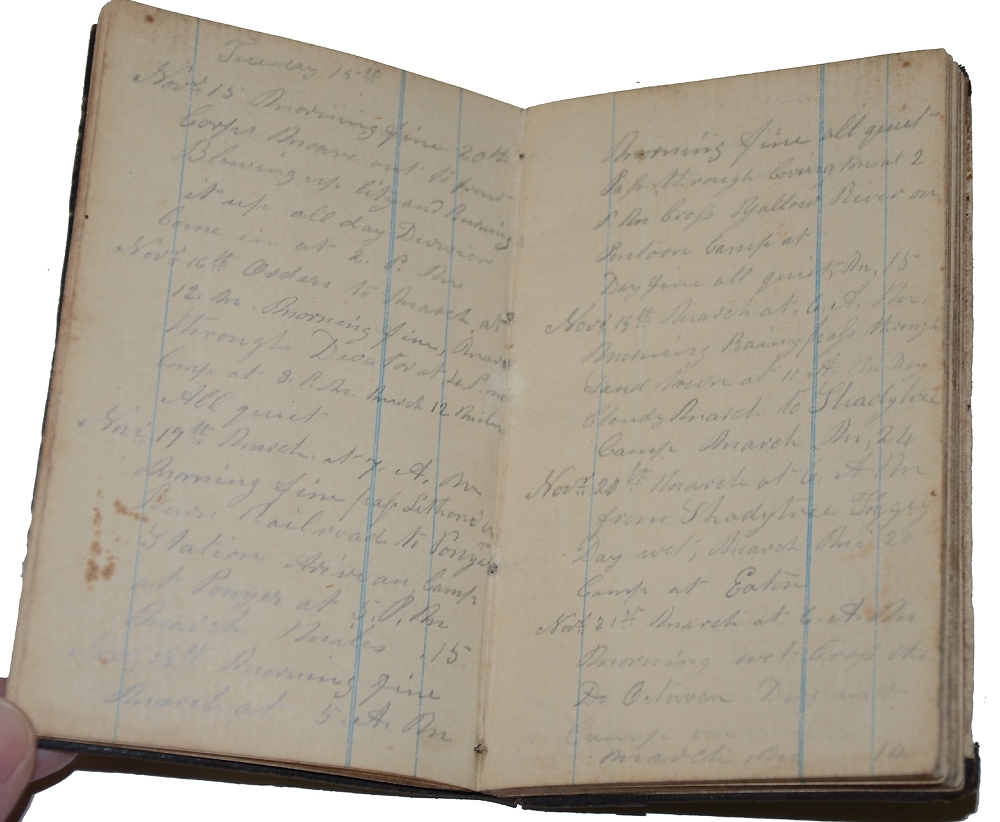 Tuesday 15th
Nov 15 Morning fine. 20th
Corps Moove out to front
Blowing up City and Burning
it up all day Division
Come in at 2. P. M
Nov 16th Orders to March at
12. M. Morning fine, March
through Decator at 4. P. m
Camp at 8. P. M. March 12 Miles
All quiet
Nov 17th March. at 7. A. M
Morning fine pass Lithonia
Burn Railroad to Conyer
Station Arive an Camp
at Conyer at 5. P. M
March Miles 15
Nov 18th Morning fine
March at 5. A. M
Morning fine all quiet
Pass through Covington at 2
P M Cross Yallow River on
Pontoon Camp at
Day fine all quiet, M, 15
Nov 19th March at. 6. A. M.
Morning Rainy pass through
Sand town at 11 A. M Day
Cloudy March to Shadytree
Camp March M, 24
Nov 20th March at 6 A M
from Shadytree Foggy
Day wet, March M 20
Camp at Eaton
Nov 21st March at 6. A. M
Morning wet Cross the
Day
Camp
March M